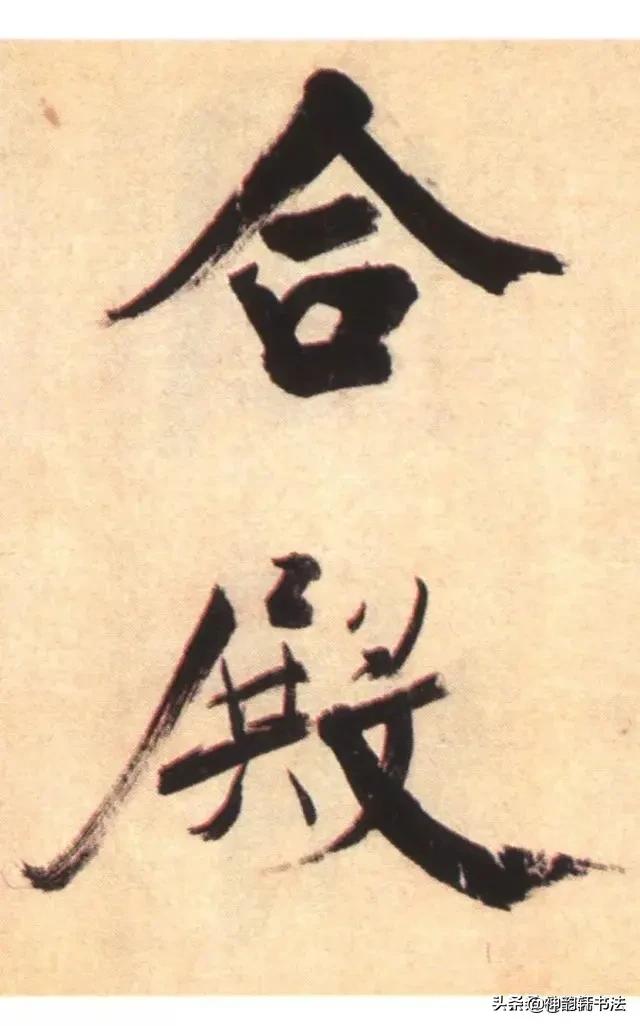 合
殿
头条@神韵轩书法